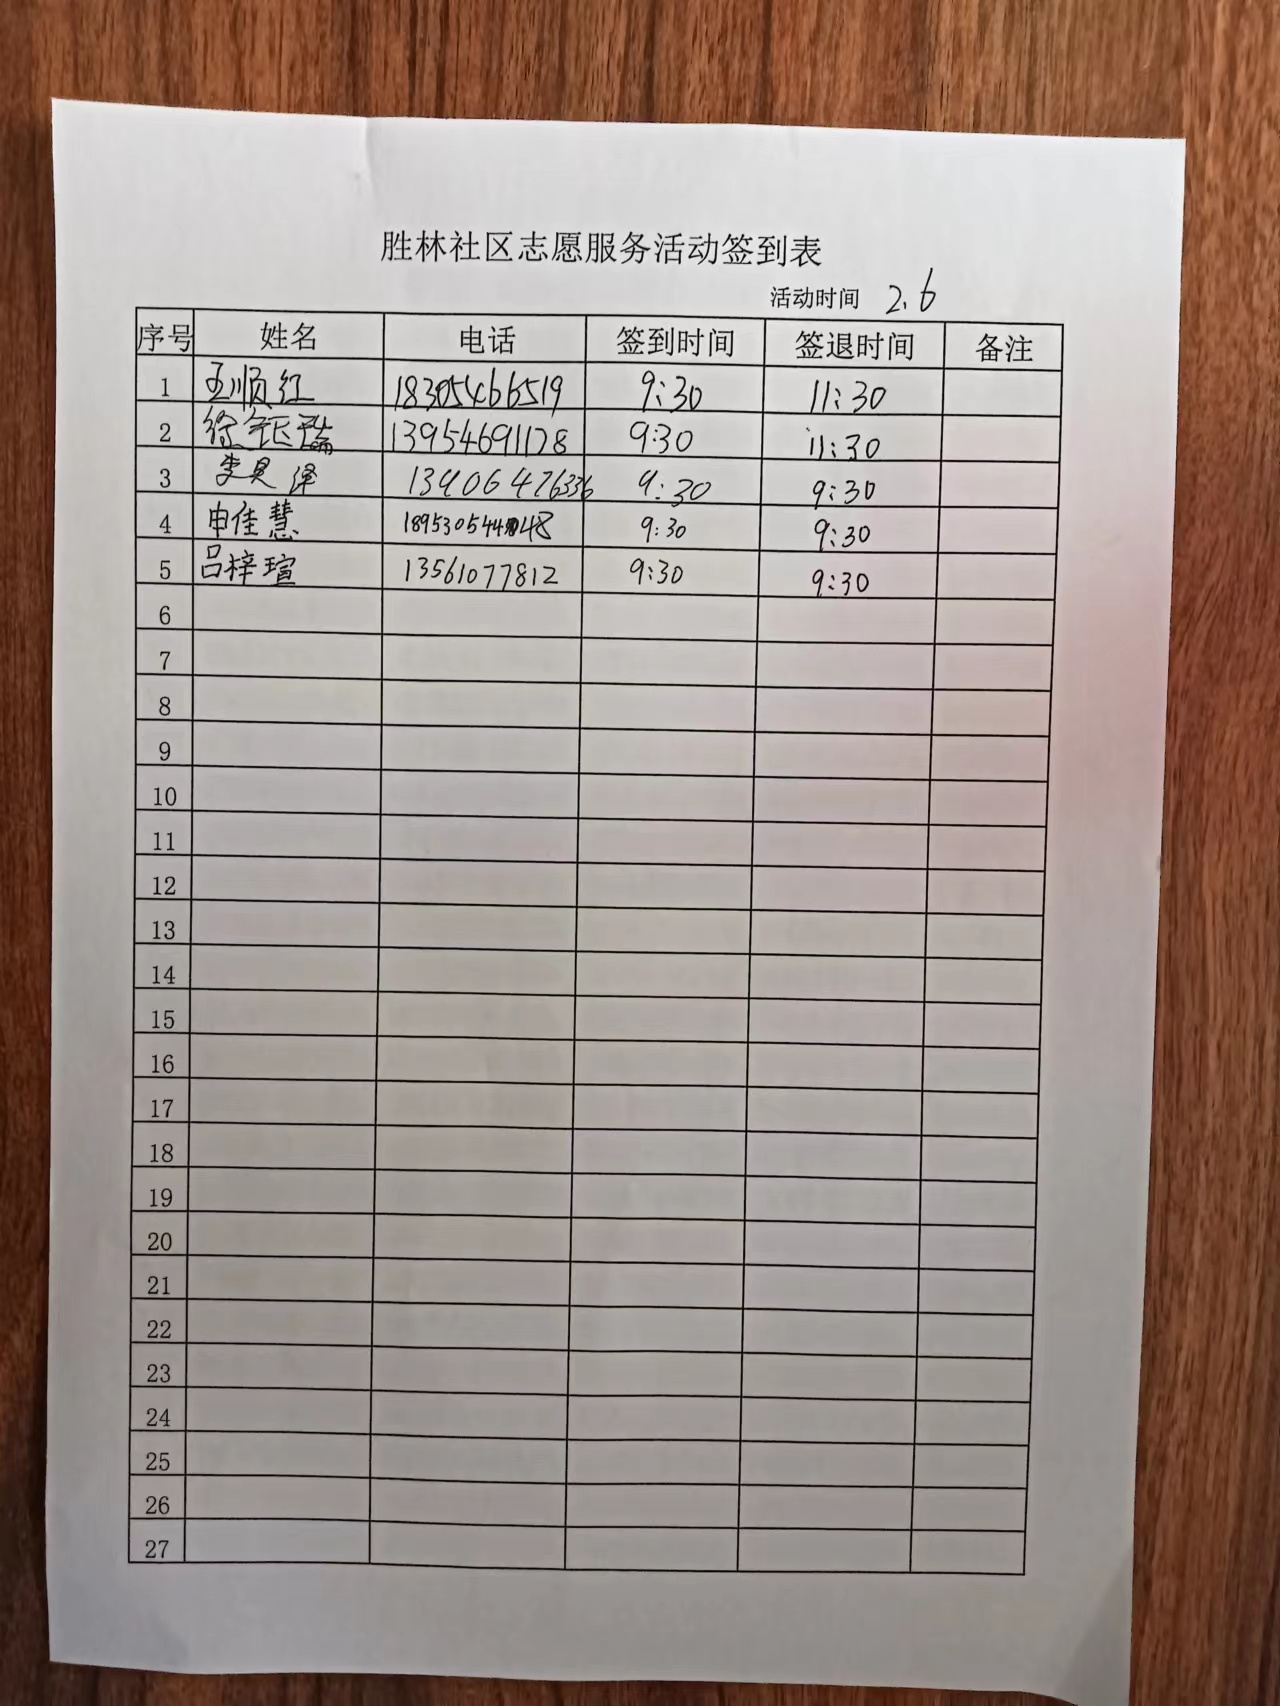 胜林社区志愿服务活动签到表
活动时间 2.6
序号 姓名 电话 签到时间 签退时间 备注
1 王顺红 18305466519 9:30 11:30
2 徐钰瑞 13954691178 9:30 11:30
3 李昊泽 13906476336 9:30 9:30
4 申佳慧 9:30 9:30
5 吕梓瑄 13561077812 9:30 9:30
6
7
8
9
10
11
12
13
14
15
16
17
18
19
20
21
22
23
24
25
26
27